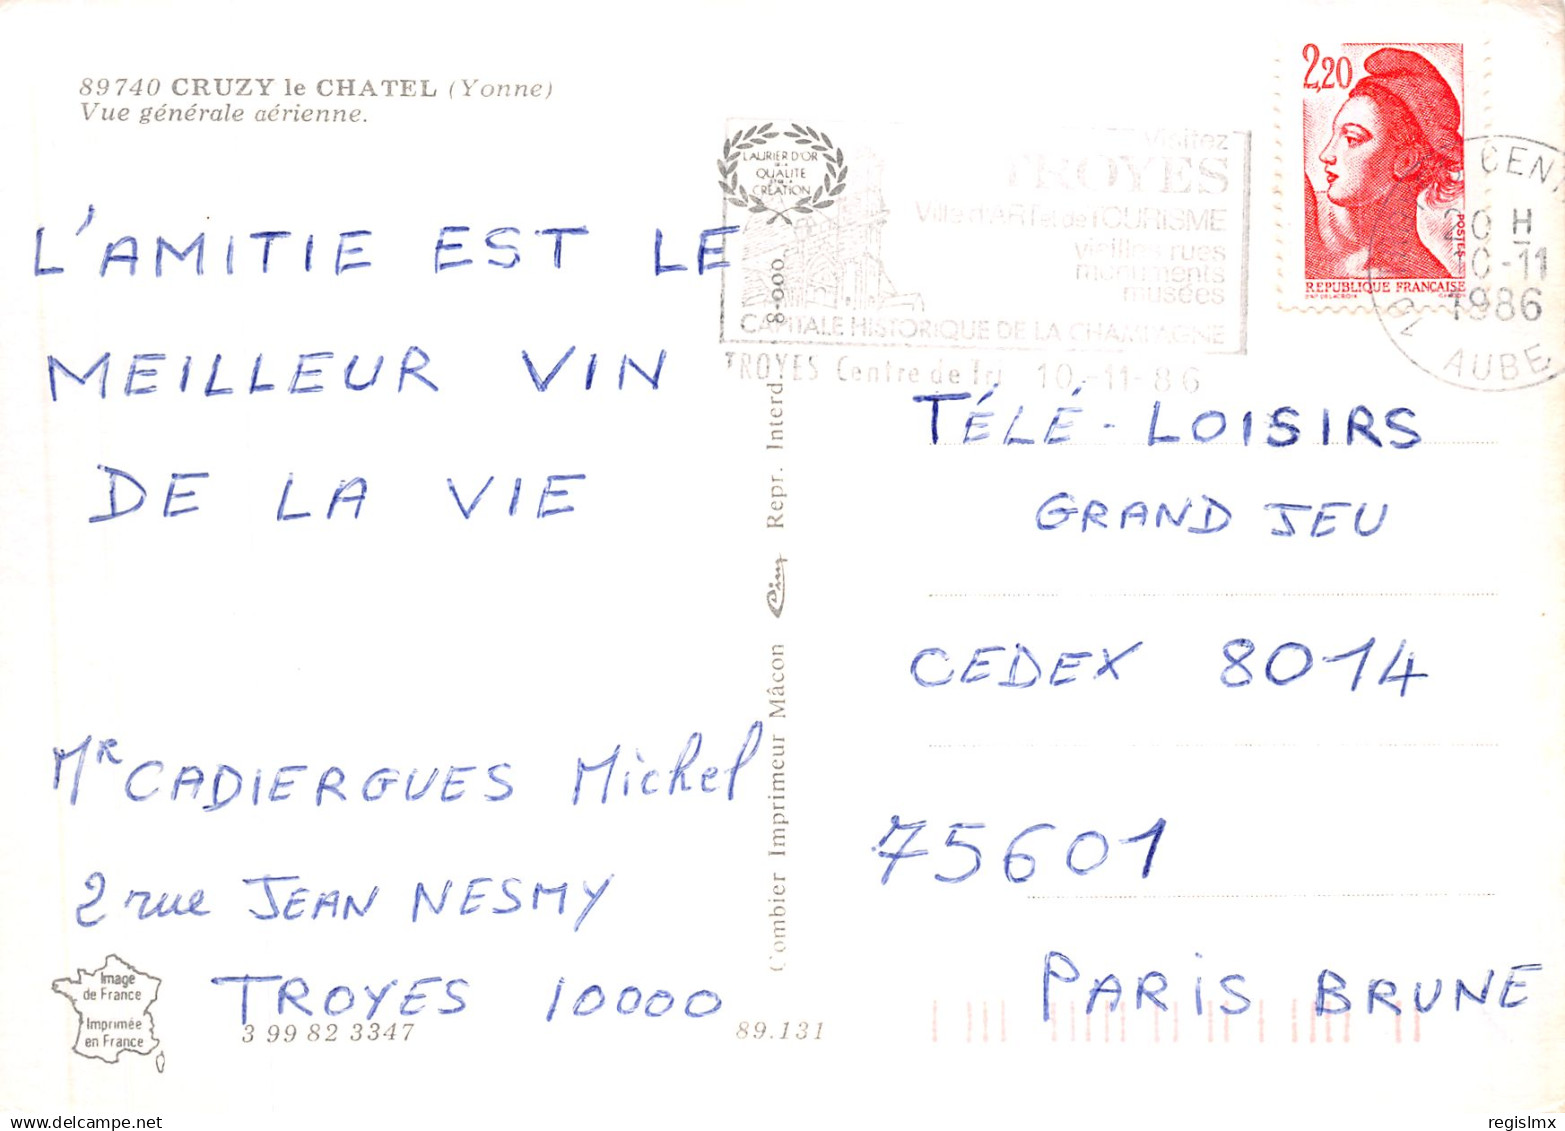 89740 CRUZY le CHATEL (Yonne)
Vue générale aérienne.
L'AMITIE EST LE
MEILLEUR VIN
DE LA VIE
Mr CADIERGUES Michel
2 rue JEAN NESMY
TROYES 10000
Image
de France
Imprimée
en France
3 99 82 3347
89.131
Combier Imprimeur Mâcon
Cim
Repr. Interd.
8-000
LAURIER D'OR
DE LA
QUALITE
CRÉATION
Visitez
TROYES
Ville d'ART et de TOURISME
vieilles rues
monuments
musées
CAPITALE HISTORIQUE DE LA CHAMPAGNE
TROYES Centre de Tri 10-11-86
2,20
POSTES
REPUBLIQUE FRANÇAISE
20 H
10-11
1986
AUBE
TÉLÉ-LOISIRS
GRAND JEU
CEDEX 8014
75601
PARIS BRUNE
regislmx